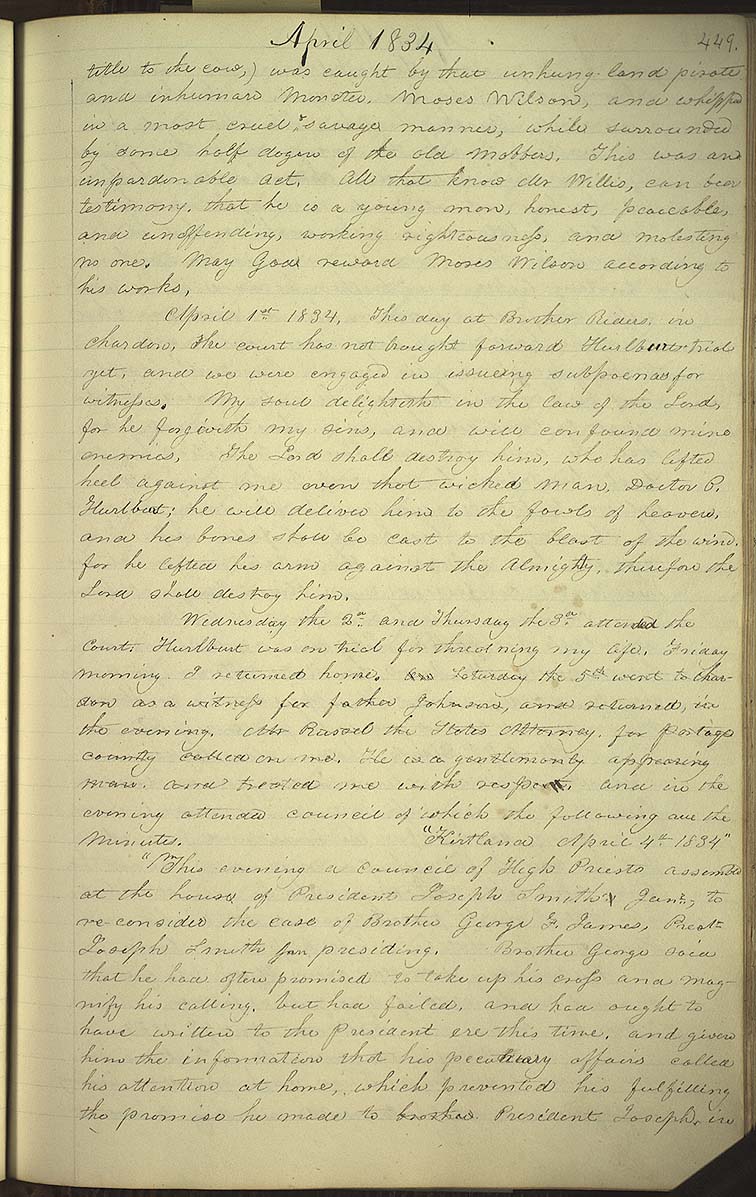 April 1834
449.
title to the cow,) was caught by that unhung-land pirate
and inhuman monster, Moses Wilson, and whipped
in a most cruel & savage manner, while surrounded
by some half dozen of the old mobbers. This was an
unpardonable act. All that know Mr Willis, can bear
testimony, that he is a young man, honest, peaceable,
and unoffending, working righteousness, and molesting
no one. May God reward Moses Wilson according to
his works.
April 1st 1834. This day at Brother Riders, in
chardon, the court has not brought forward Hurlburts trial
yet, and we were engaged in issueing subpoenas for
witnesses. My soul delighteth in the law of the Lord,
for he forgiveth my sins, and will confound mine
enemies. The Lord shall destroy him, who has lifted
heel against me even that wicked man, Doctor P.
Hurlburt; he will deliver him to the fowls of heaven,
and his bones shall be cast to the blast of the wind.
for he lifted his arm against the Almighty, therefore the
Lord shall destroy him.
Wednesday the 2d and Thursday the 3d attended the
court. Hurlburt was on trial for threatning my life. Friday
morning I returned home. Saturday the 5th went to Char-
don as a witness for father Johnson, and returned, in
the evening. Mr Russel the States Attorney, for portage
county called on me. He is a gentlemanly appearing
man. and treated me with respect. and in the
evening attended council of which the following are the
Minutes. "Kirtland April 4th 1834"
"This evening a council of High Priests assembled
at the house of President Joseph Smith Junr, to
re-consider the case of Brother George F. James, Prest
Joseph Smith jun presiding. Brother George said
that he had often promised to take up his cross and mag-
nify his calling, but had failed, and had ought to
have written to the President ere this time, and given
him the information that his pecuniary affairs called
his attention at home, which prevented his fulfilling
the promise he made to brother President Joseph, in